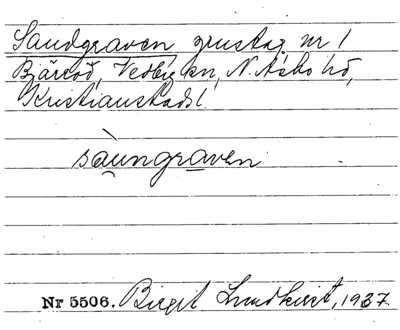 Sandgraven, grustag nr 1
Bjärröd, Vedby sn, N. Åsbo hd,
Kristianstads l.
sàungraven
Nr 5506. Birgit Lundkvist, 1937.